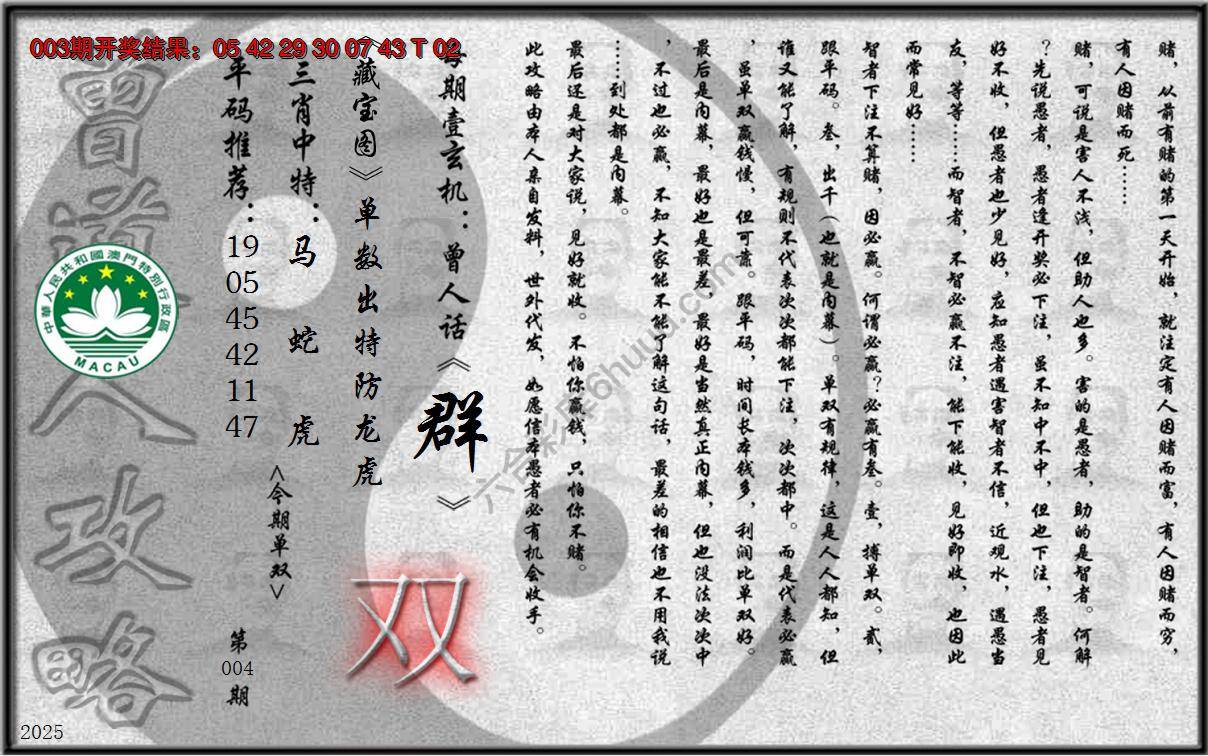 003期开奖结果：05 42 29 30 07 43 T 02
赌，从前有赌的第一天开始，就注定有人因赌而富，有人因赌而穷，
有人因赌而死……
赌，可说是害人不浅，但助人也多。害的是愚者，助的是智者。何解
？先说愚者，愚者逢开奖必下注，虽不知中不中，但也下注，愚者见
好不收，但愚者也少见好，应知愚者遇害智者不信，近观水，遇愚当
友，等等……而智者，不智必赢不注，能下能收，见好即收，也因此
而常见好……
智者下注不算赌，因必赢。何谓必赢？必赢有叁。壹，搏单双。贰，
跟平码。叁，出千（也就是内幕）。单双有规律，这是人人都知，但
谁又能了解，有规则不代表次次都能下注，次次都中。而是代表必赢
，虽单双赢钱慢，但可靠。跟平码，时间长本钱多，利润比单双好。
最后是内幕，最好也是最差，最好是当然真正内幕，但也没法次次中
，不过也必赢，不知大家能不能了解这句话，最差的相信也不用我说
……到处都是内幕。
最后还是对大家说，见好就收。不怕你赢钱，只怕你不赌。
此攻略由本人亲自发料，世外代发，如愿信本愚者必有机会收手。
每期壹玄机：曾人话《群》
《藏宝图》单数出特防龙虎
双
三肖中特：马 蛇 虎
<今期单双>
平码推荐：19 05 45 42 11 47
第004期
曾道人攻略
中華人民共和國澳門特別行政區
MACAU
2025